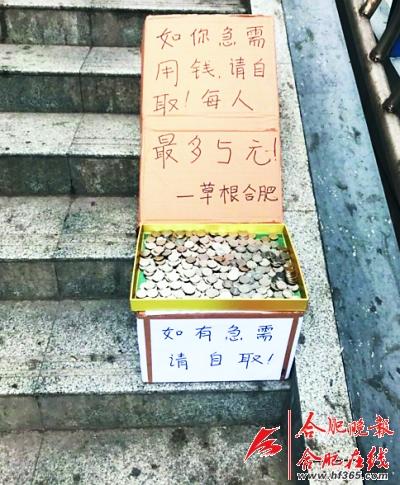 如你急需
用钱，请自
取！每人
最多5元！
—草根合肥
如有急需
请自取！
合肥晚报
合肥在线
www.hf365.com